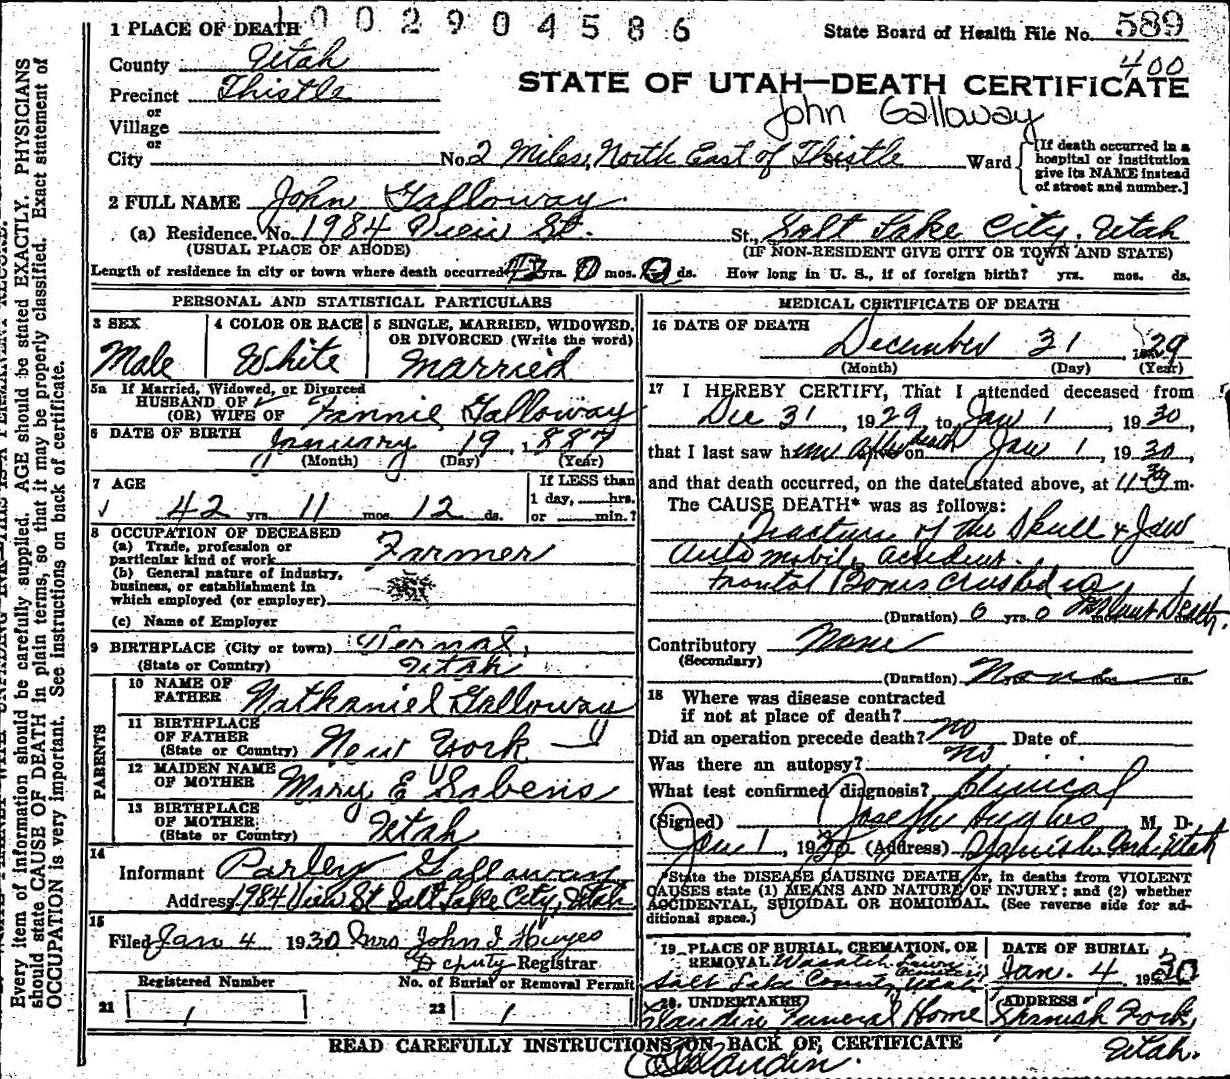 1002904586
1 PLACE OF DEATH
State Board of Health File No. 589
400
County Utah
Precinct Thistle
STATE OF UTAH—DEATH CERTIFICATE
or
Village
John Galloway
or
City No. 2 Miles, North East of Thistle St., Ward
[If death occurred in a
hospital or institution
give its NAME instead
of street and number.]
2 FULL NAME John Galloway
(a) Residence. No. 1984 View St. St., Salt Lake City, Utah
(USUAL PLACE OF ABODE) (IF NON-RESIDENT GIVE CITY OR TOWN AND STATE)
Length of residence in city or town where death occurred yrs. 0 mos. ds. How long in U. S., if of foreign birth? yrs. mos. ds.
PERSONAL AND STATISTICAL PARTICULARS
3 SEX
Male
4 COLOR OR RACE
White
5 SINGLE, MARRIED, WIDOWED,
OR DIVORCED (Write the word)
Married
5a If Married, Widowed, or Divorced
HUSBAND OF
(OR) WIFE OF Fannie Galloway
6 DATE OF BIRTH January 19, 1887
(Month) (Day) (Year)
7 AGE
42 yrs. 11 mos. 12 ds.
If LESS than
1 day, hrs.
or min.?
8 OCCUPATION OF DECEASED
(a) Trade, profession or
particular kind of work Farmer
(b) General nature of industry,
business, or establishment in
which employed (or employer)
(c) Name of Employer
9 BIRTHPLACE (City or town) Vernal,
(State or Country) Utah
PARENTS
10 NAME OF
FATHER Nathaniel Galloway
11 BIRTHPLACE
OF FATHER
(State or Country) New York
12 MAIDEN NAME
OF MOTHER Mary E Sabens
13 BIRTHPLACE
OF MOTHER
(State or Country) Utah
14
Informant Parley Galloway
Address 1984 View St Salt Lake City, Utah
15
Filed Jan 4 1930 Mrs John I Huyes
Deputy Registrar
Registered Number
21 1
No. of Burial or Removal Permit
22 1
MEDICAL CERTIFICATE OF DEATH
16 DATE OF DEATH
December 31, 1929
(Month) (Day) (Year)
17 I HEREBY CERTIFY, That I attended deceased from
Dec 31, 1929 to Jan 1, 1930,
that I last saw him after death on Jan 1, 1930,
and that death occurred, on the date stated above, at 11 30 m.
The CAUSE DEATH* was as follows:
Fracture of the Skull & Jaw
Automobile accident
Frontal Bones crushed in
(Duration) 0 yrs. 0 mos. Instant Death
Contributory None
(Secondary)
(Duration) None mos. ds.
18 Where was disease contracted
if not at place of death?
Did an operation precede death? no Date of
Was there an autopsy? No
What test confirmed diagnosis? Clinical
(Signed) Joseph Hughes M. D.
Jan 1, 1930 (Address) Spanish Fork Utah
*State the DISEASE CAUSING DEATH, or, in deaths from VIOLENT
CAUSES state (1) MEANS AND NATURE OF INJURY; and (2) whether
ACCIDENTAL, SUICIDAL OR HOMICIDAL. (See reverse side for ad-
ditional space.)
19 PLACE OF BURIAL, CREMATION, OR
REMOVAL Wasatch Lawn
Cemetery
Salt Lake County, Utah
DATE OF BURIAL
Jan. 4 1930
20. UNDERTAKER
Claudin Funeral Home
ADDRESS
Spanish Fork,
Utah.
READ CAREFULLY INSTRUCTIONS ON BACK OF CERTIFICATE
Claudin.
Every item of information should be carefully supplied. AGE should be stated EXACTLY. PHYSICIANS
should state CAUSE OF DEATH in plain terms, so that it may be properly classified. Exact statement of
OCCUPATION is very important. See instructions on back of certificate.